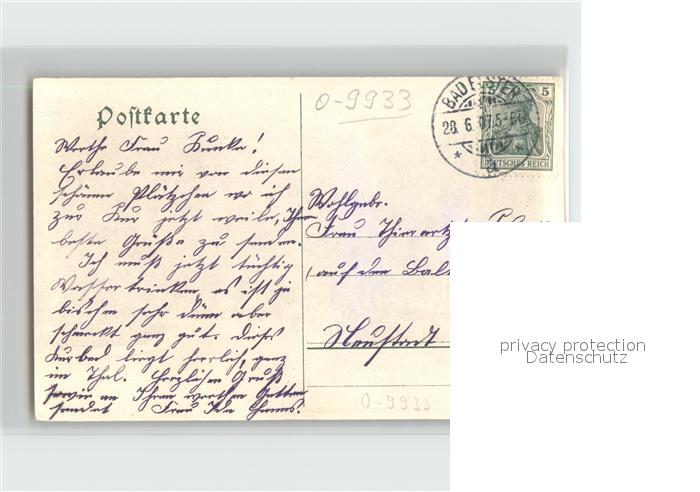 Postkarte
0-9933
BAD ELSTER
28. 6. 07. 5-6
5
DEUTSCHES REICH
Werthe Frau Kunke!
Erlaube mir von diesem
schönen Plätzchen wo ich
zur Kur jetzt weile, Ihnen
beste Grüße zu senden.
Ich muß jetzt tüchtig
Wasser trinken, es ist ja
bischen sehr dünn aber
schmeckt ganz gut. Dieses
Kurbad liegt herrlich, ganz
im Thal. Herzlichen Gruß
sowie an Ihren werthen Gatten
sendet Frau Ida
Wohlgebr.
Frau Thierarzt
auf der
Neustadt
0-9933
privacy protection
Datenschutz